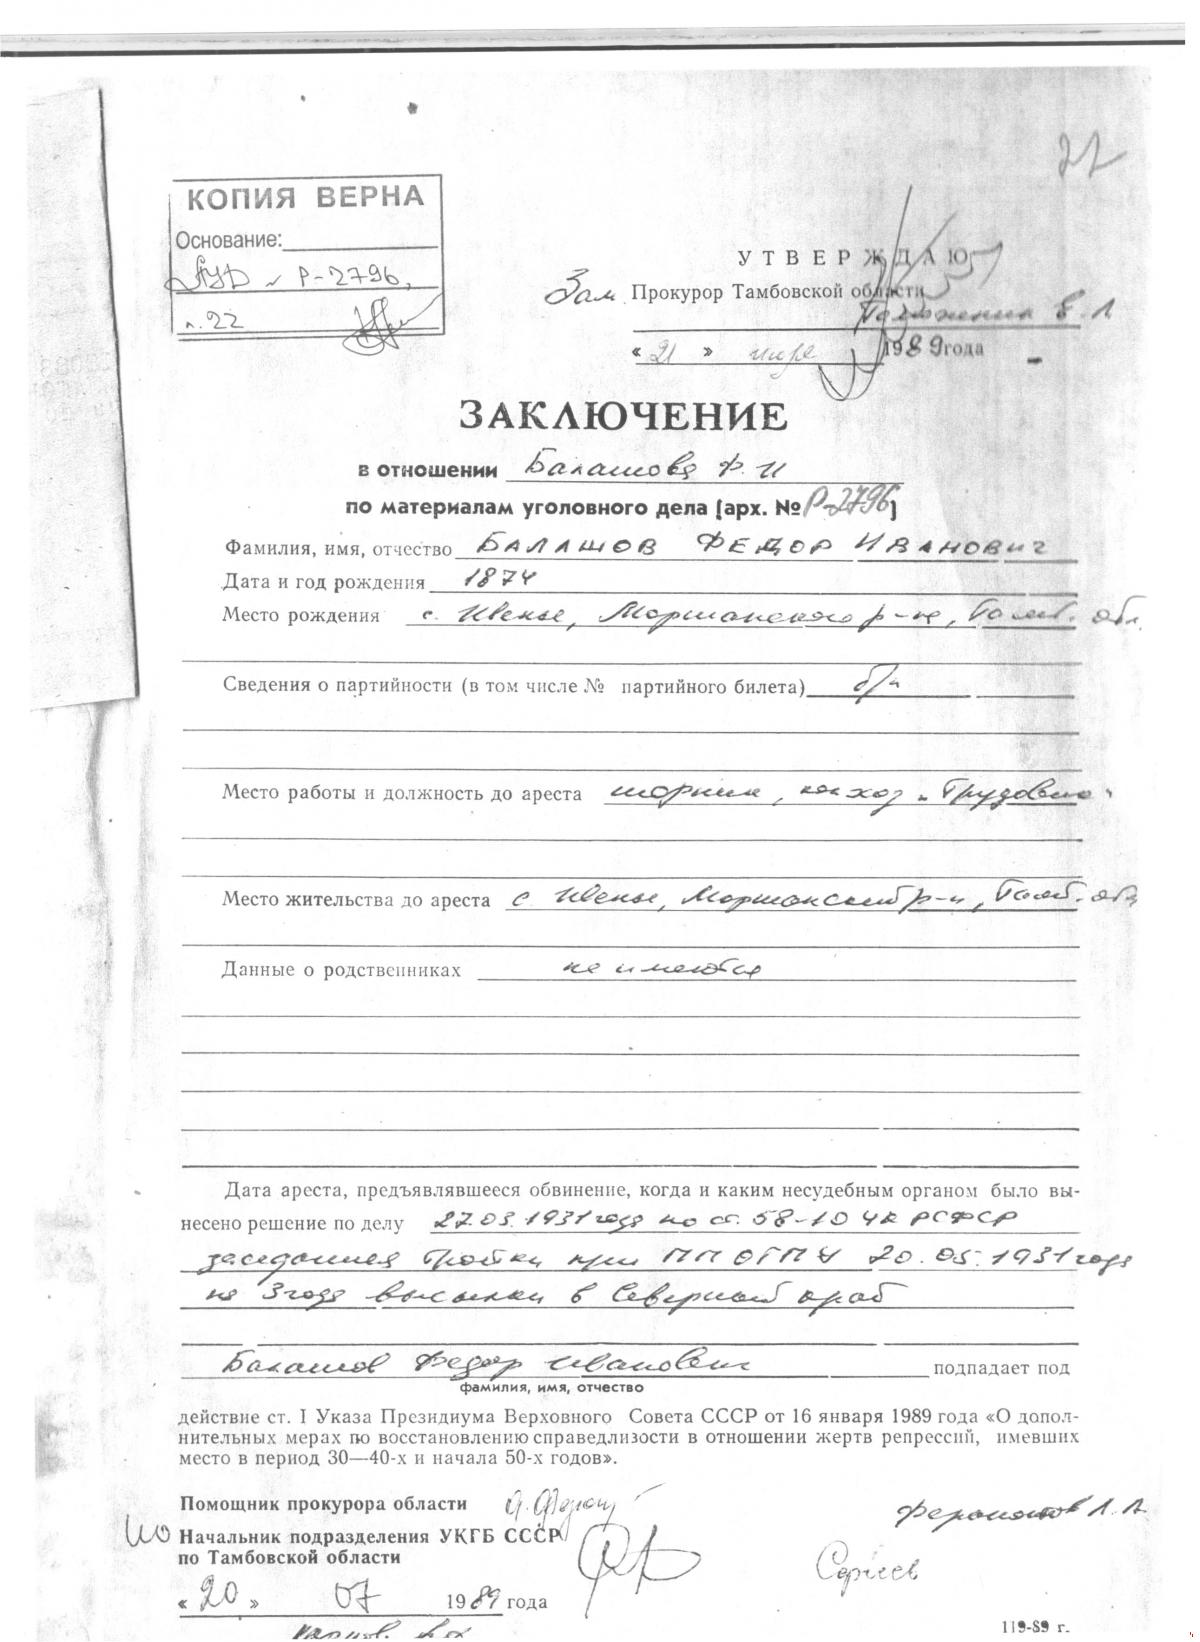 22
КОПИЯ ВЕРНА
Основание:
АУД № Р-2796,
л. 22
УТВЕРЖДАЮ
Зам. Прокурор Тамбовской области
Е. Л
« 21 » 1989 года
ЗАКЛЮЧЕНИЕ
в отношении Балашова Ф. И
по материалам уголовного дела [арх. № Р-2796]
Фамилия, имя, отчество БАЛАШОВ ФЕДОР ИВАНОВИЧ
Дата и год рождения 1874
Место рождения с. Ивенье, Моршанского р-на, Тамб. обл.
Сведения о партийности (в том числе № партийного билета) б/п
Место работы и должность до ареста шорник, колхоз „Трудовик"
Место жительства до ареста с Ивенье, Моршанский р-н, Тамб. обл
Данные о родственниках не имеются
Дата ареста, предъявлявшееся обвинение, когда и каким несудебным органом было вы-
несено решение по делу 27.03.1931 года по ст. 58-10 УК РСФСР
заседанием Тройки при ПП ОГПУ 20.05.1931 года
на 3 года высылки в Северный край
Балашов Федор Иванович подпадает под
фамилия, имя, отчество
действие ст. I Указа Президиума Верховного Совета СССР от 16 января 1989 года «О допол-
нительных мерах по восстановлению справедлизости в отношении жертв репрессий, имевших
место в период 30—40-х и начала 50-х годов».
Помощник прокурора области
Л. А.
ИО Начальник подразделения УКГБ СССР
по Тамбовской области
Сергеев
« 20 » 07 1989 года
119-89 г.